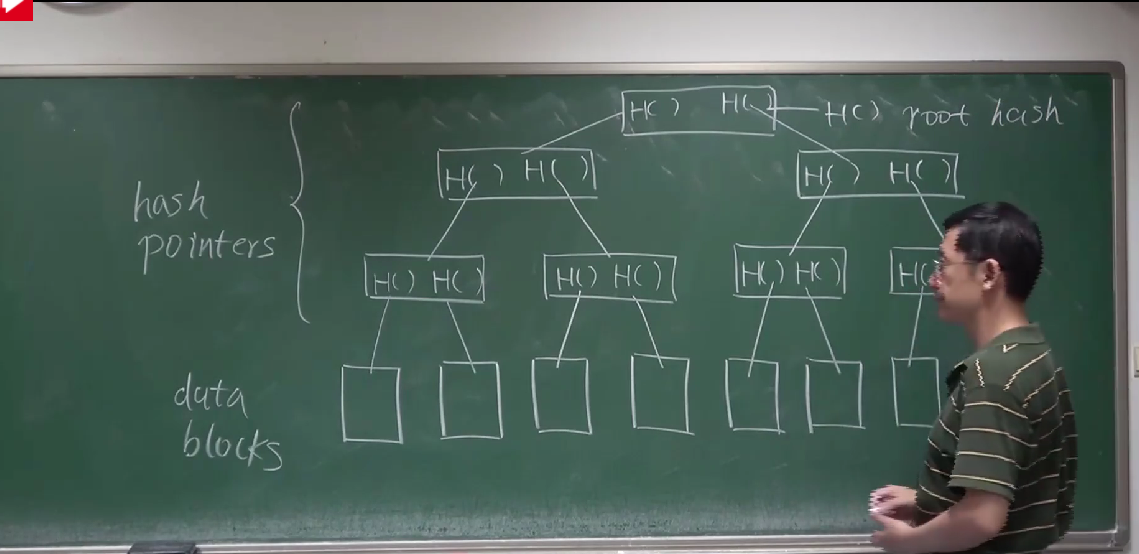 H( ) H( ) H( ) root hash
H( ) H( ) H( ) H( )
hash
pointers
H( ) H( ) H( ) H( ) H( ) H( ) H(
data
blocks